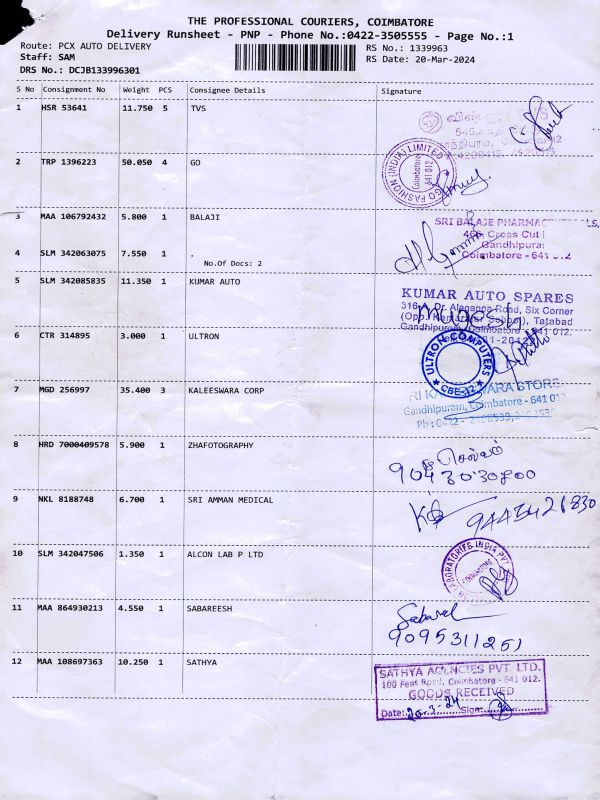 THE PROFESSIONAL COURIERS, COIMBATORE
Delivery Runsheet - PNP - Phone No.:0422-3505555 - Page No.:1
Route: PCX AUTO DELIVERY
RS No.: 1339963
Staff: SAM
RS Date: 20-Mar-2024
DRS No.: DCJB133996301
S No Consignment No Weight PCS Consignee Details Signature
1 HSR 53641 11.750 5 TVS
2 TRP 1396223 50.050 4 GO
GO FASHION (INDIA) LIMITED
Coimbatore
641 012
3 MAA 106792432 5.800 1 BALAJI
SRI BALAJE
Cross Cut
Gandhipura
Coimbatore - 641
4 SLM 342063075 7.550 1 .
No.Of Docs: 2
5 SLM 342085835 11.350 1 KUMAR AUTO
KUMAR AUTO SPARES
Road, Six Corner
(Opp. School), Tatabad
Gandhipuram,
6 CTR 314895 3.000 1 ULTRON
ULTRON COMPUTERS
CBE-12
7 MGD 256997 35.400 3 KALEESWARA CORP
STORE
Gandhipuram, Coimbatore - 641 012
8 HRD 7000409578 5.900 1 ZHAFOTOGRAPHY
செல்வம்
9043030800
9 NKL 8188748 6.700 1 SRI AMMAN MEDICAL
10 SLM 342047506 1.350 1 ALCON LAB P LTD
LABORATORIES INDIA PVT
11 MAA 864930213 4.550 1 SABAREESH
9095311251
12 MAA 108697363 10.250 1 SATHYA
SATHYA AGENCIES PVT. LTD.
100 Feet Road, Coimbatore - 641 012.
GOODS RECEIVED
Date: 20-3-24 Sign: